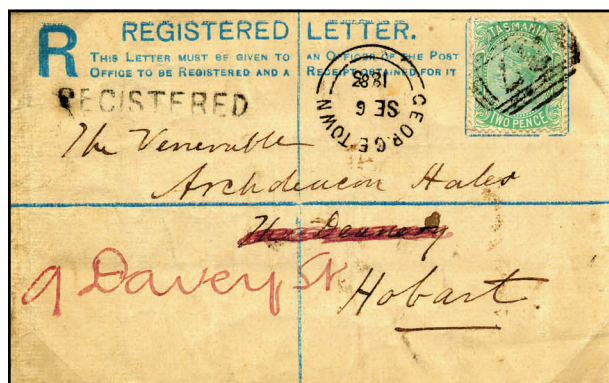 R REGISTERED LETTER.
THIS LETTER MUST BE GIVEN TO AN OFFICER OF THE POST
OFFICE TO BE REGISTERED AND A RECEIPT OBTAINED FOR IT
REGISTERED
GEORGE TOWN
SE 6
TASMANIA
TWO PENCE
The Venerable
Archdeacon Hales
The Deanery
9 Davey St
Hobart.